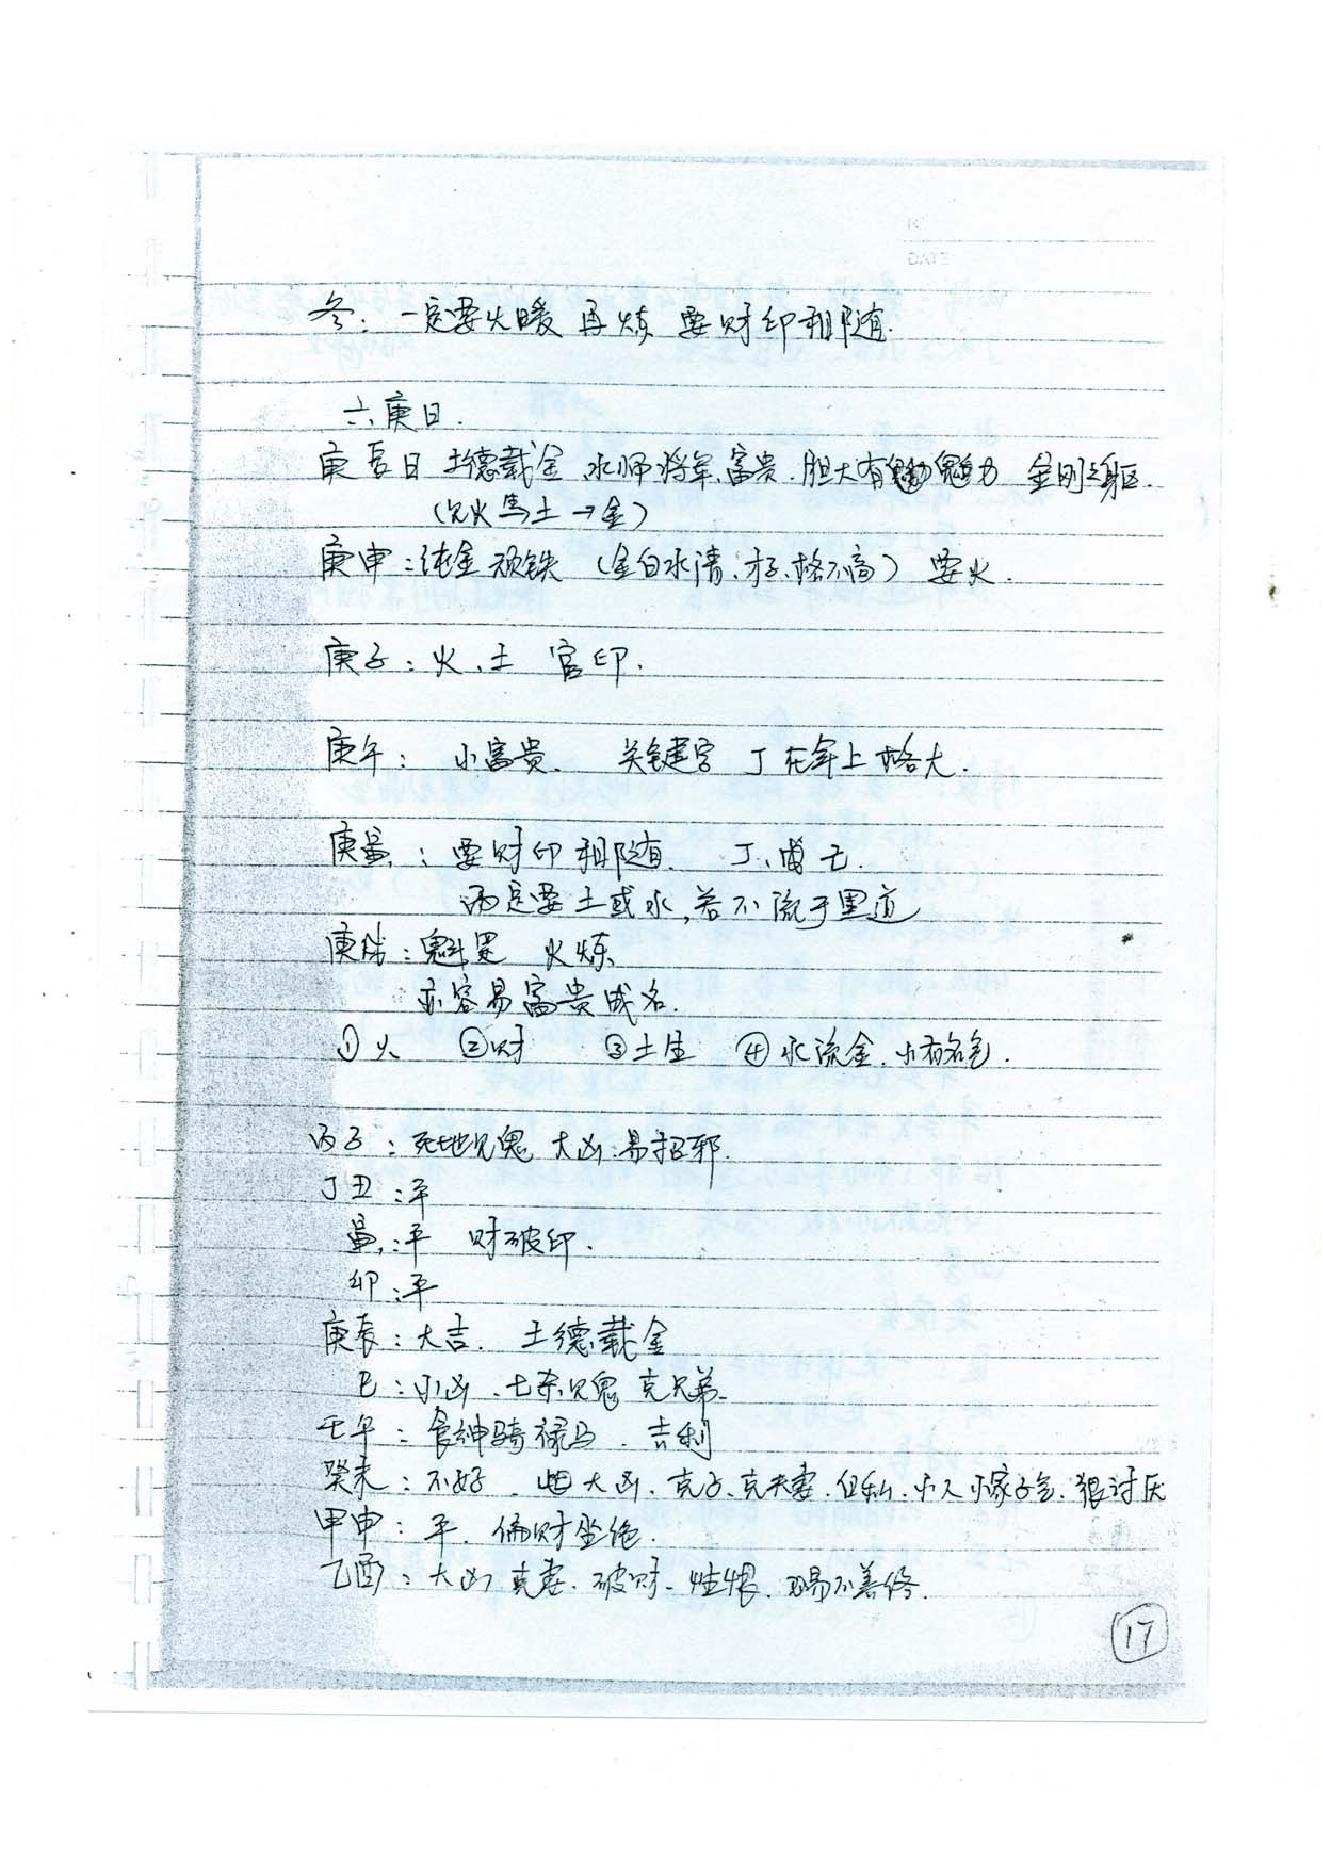 冬：一定要火暖 再炼 要财印相随.
六庚日.
庚辰日 土德载金 水师将军、富贵. 胆大有魄力 金刚之躯.
(见火焉土→金)
庚申：纯金顽铁 (金白水清、才子、格不高) 要火.
庚子：火、土 官印.
庚午： 小富贵. 关键字 丁在年上 格大.
庚寅： 要财印相随. 丁、或己.
丙定要土或水, 若不流于黑道
庚戌：魁罡 火炼
亦容易富贵成名.
①火 ②财 ③土生 ④水流金. 小有名色.
丙子：死地见鬼 大凶：易招邪.
丁丑：平
寅：平 财破印.
卯：平
庚辰：大吉. 土德载金
巳：小凶. 七杀见鬼 克兄弟.
壬午：食神骑禄马. 吉利
癸未：不好. 大凶. 克子、克夫妻. 自私. 小人 小家子气. 狠讨厌
甲申：平. 偏财坐绝.
乙酉：大凶 克妻. 破财. 性恨. 不善终.
17